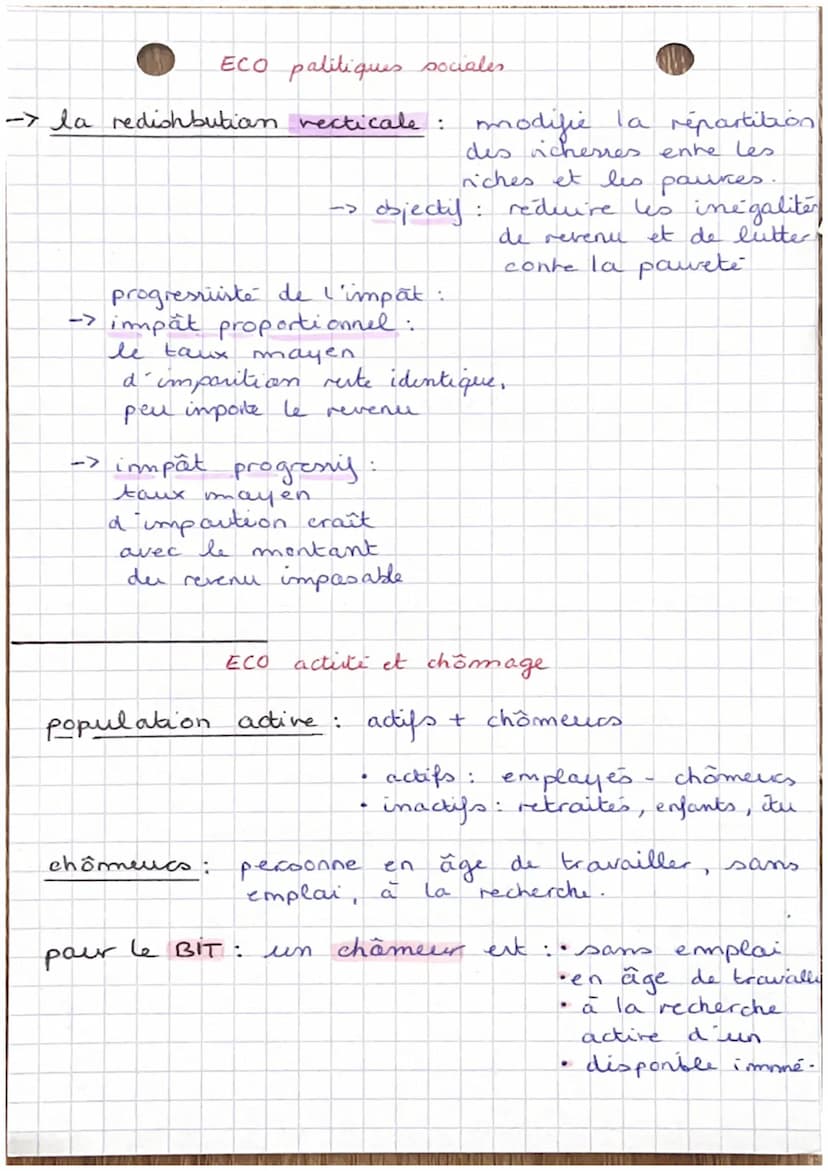 ECO politiques sociales
-> la redistribution verticale : modifie la répartition
des richesses entre les
riches et les pauvres.
-> objectif : réduire les inégalités
de revenu et de lutter
contre la pauvreté
progressivité de l'impôt :
-> impôt proportionnel :
le taux moyen
d'imposition reste identique,
peu importe le revenu
-> impôt progressif :
taux moyen
d'imposition croît
avec le montant
du revenu imposable
ECO activité et chômage
population active : actifs + chômeurs
• actifs : employés - chômeurs
• inactifs : retraités, enfants, étu
chômeurs : personne en âge de travailler, sans
emploi, à la recherche.
pour le BIT : un chômeur est : • sans emploi
• en âge de travaille
• à la recherche
active d'un
• disponible immé-